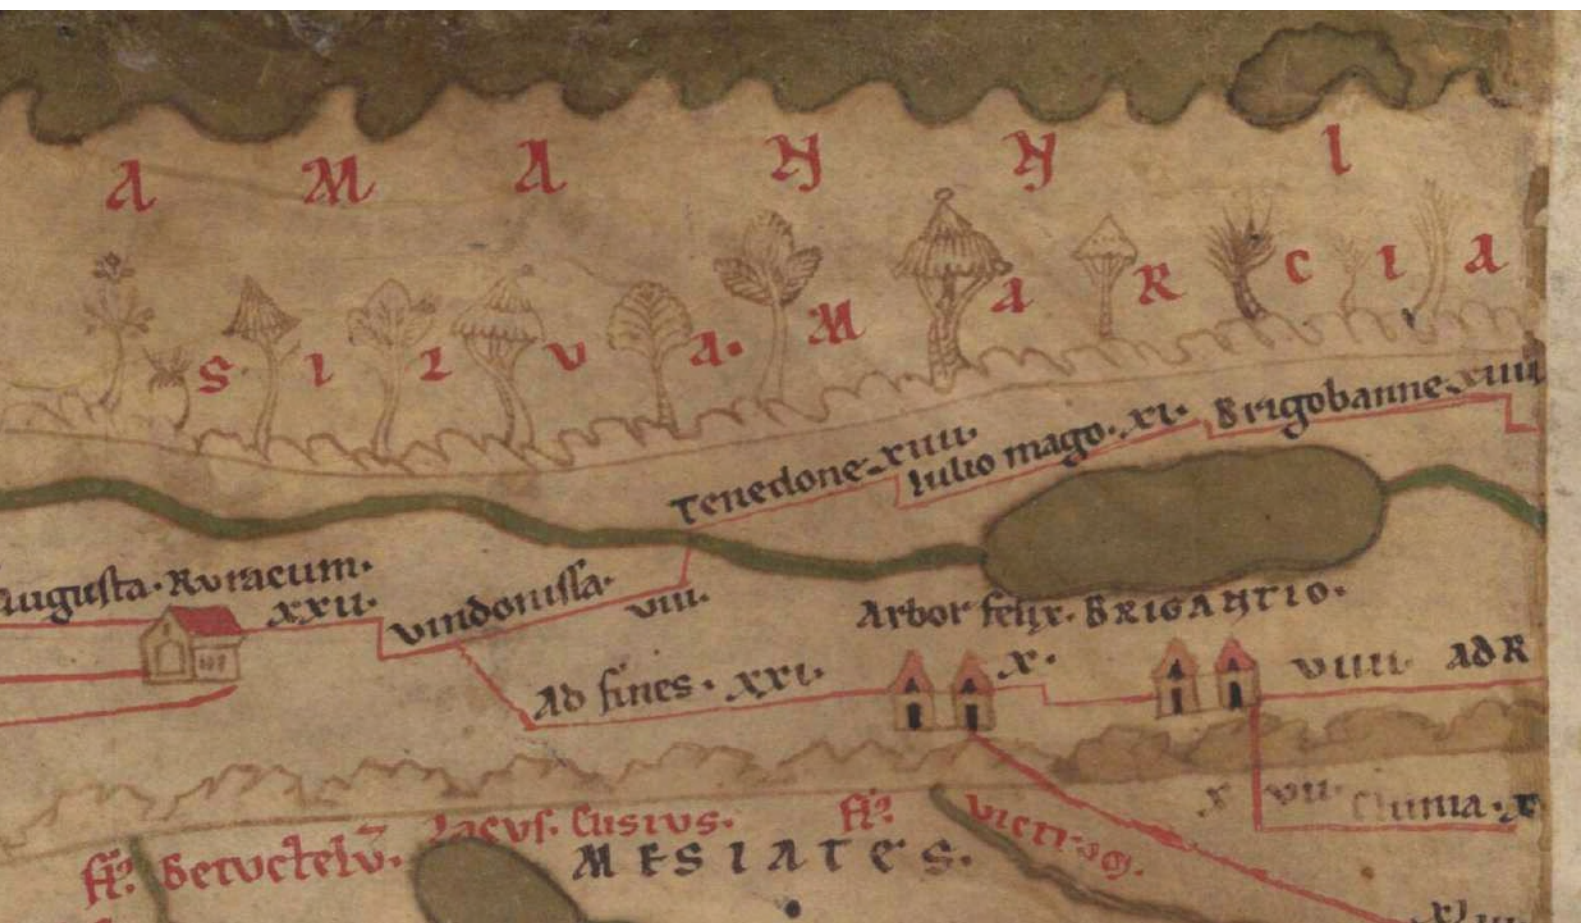 A M A N N I
S I L V A . M A R C I A
Tenedone . xiiii .
Iulio mago . xi .
Brigobanne . xiiii
Augusta . Ruracum .
xxii .
vindonissa .
viii .
Arbor felix . BRIGANTIO .
Ad fines . xxi .
x .
viiii . AdR
x vii . Clunia . x
fl . Betuctelu . Lacus . Clisius . fl .
MESIATES .